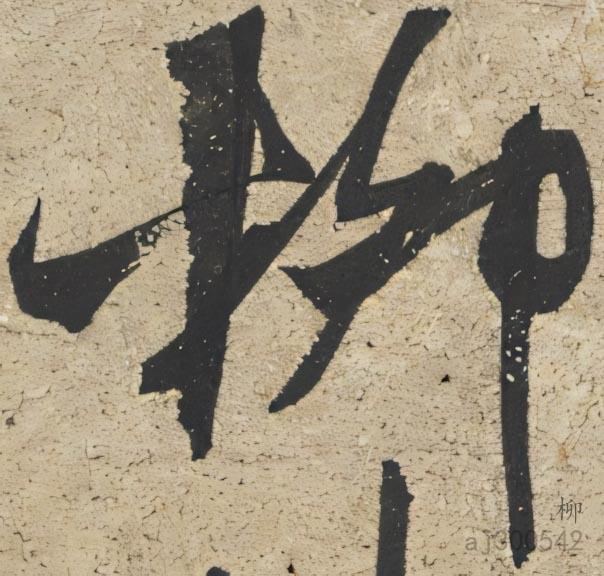 柳
柳
aj300542